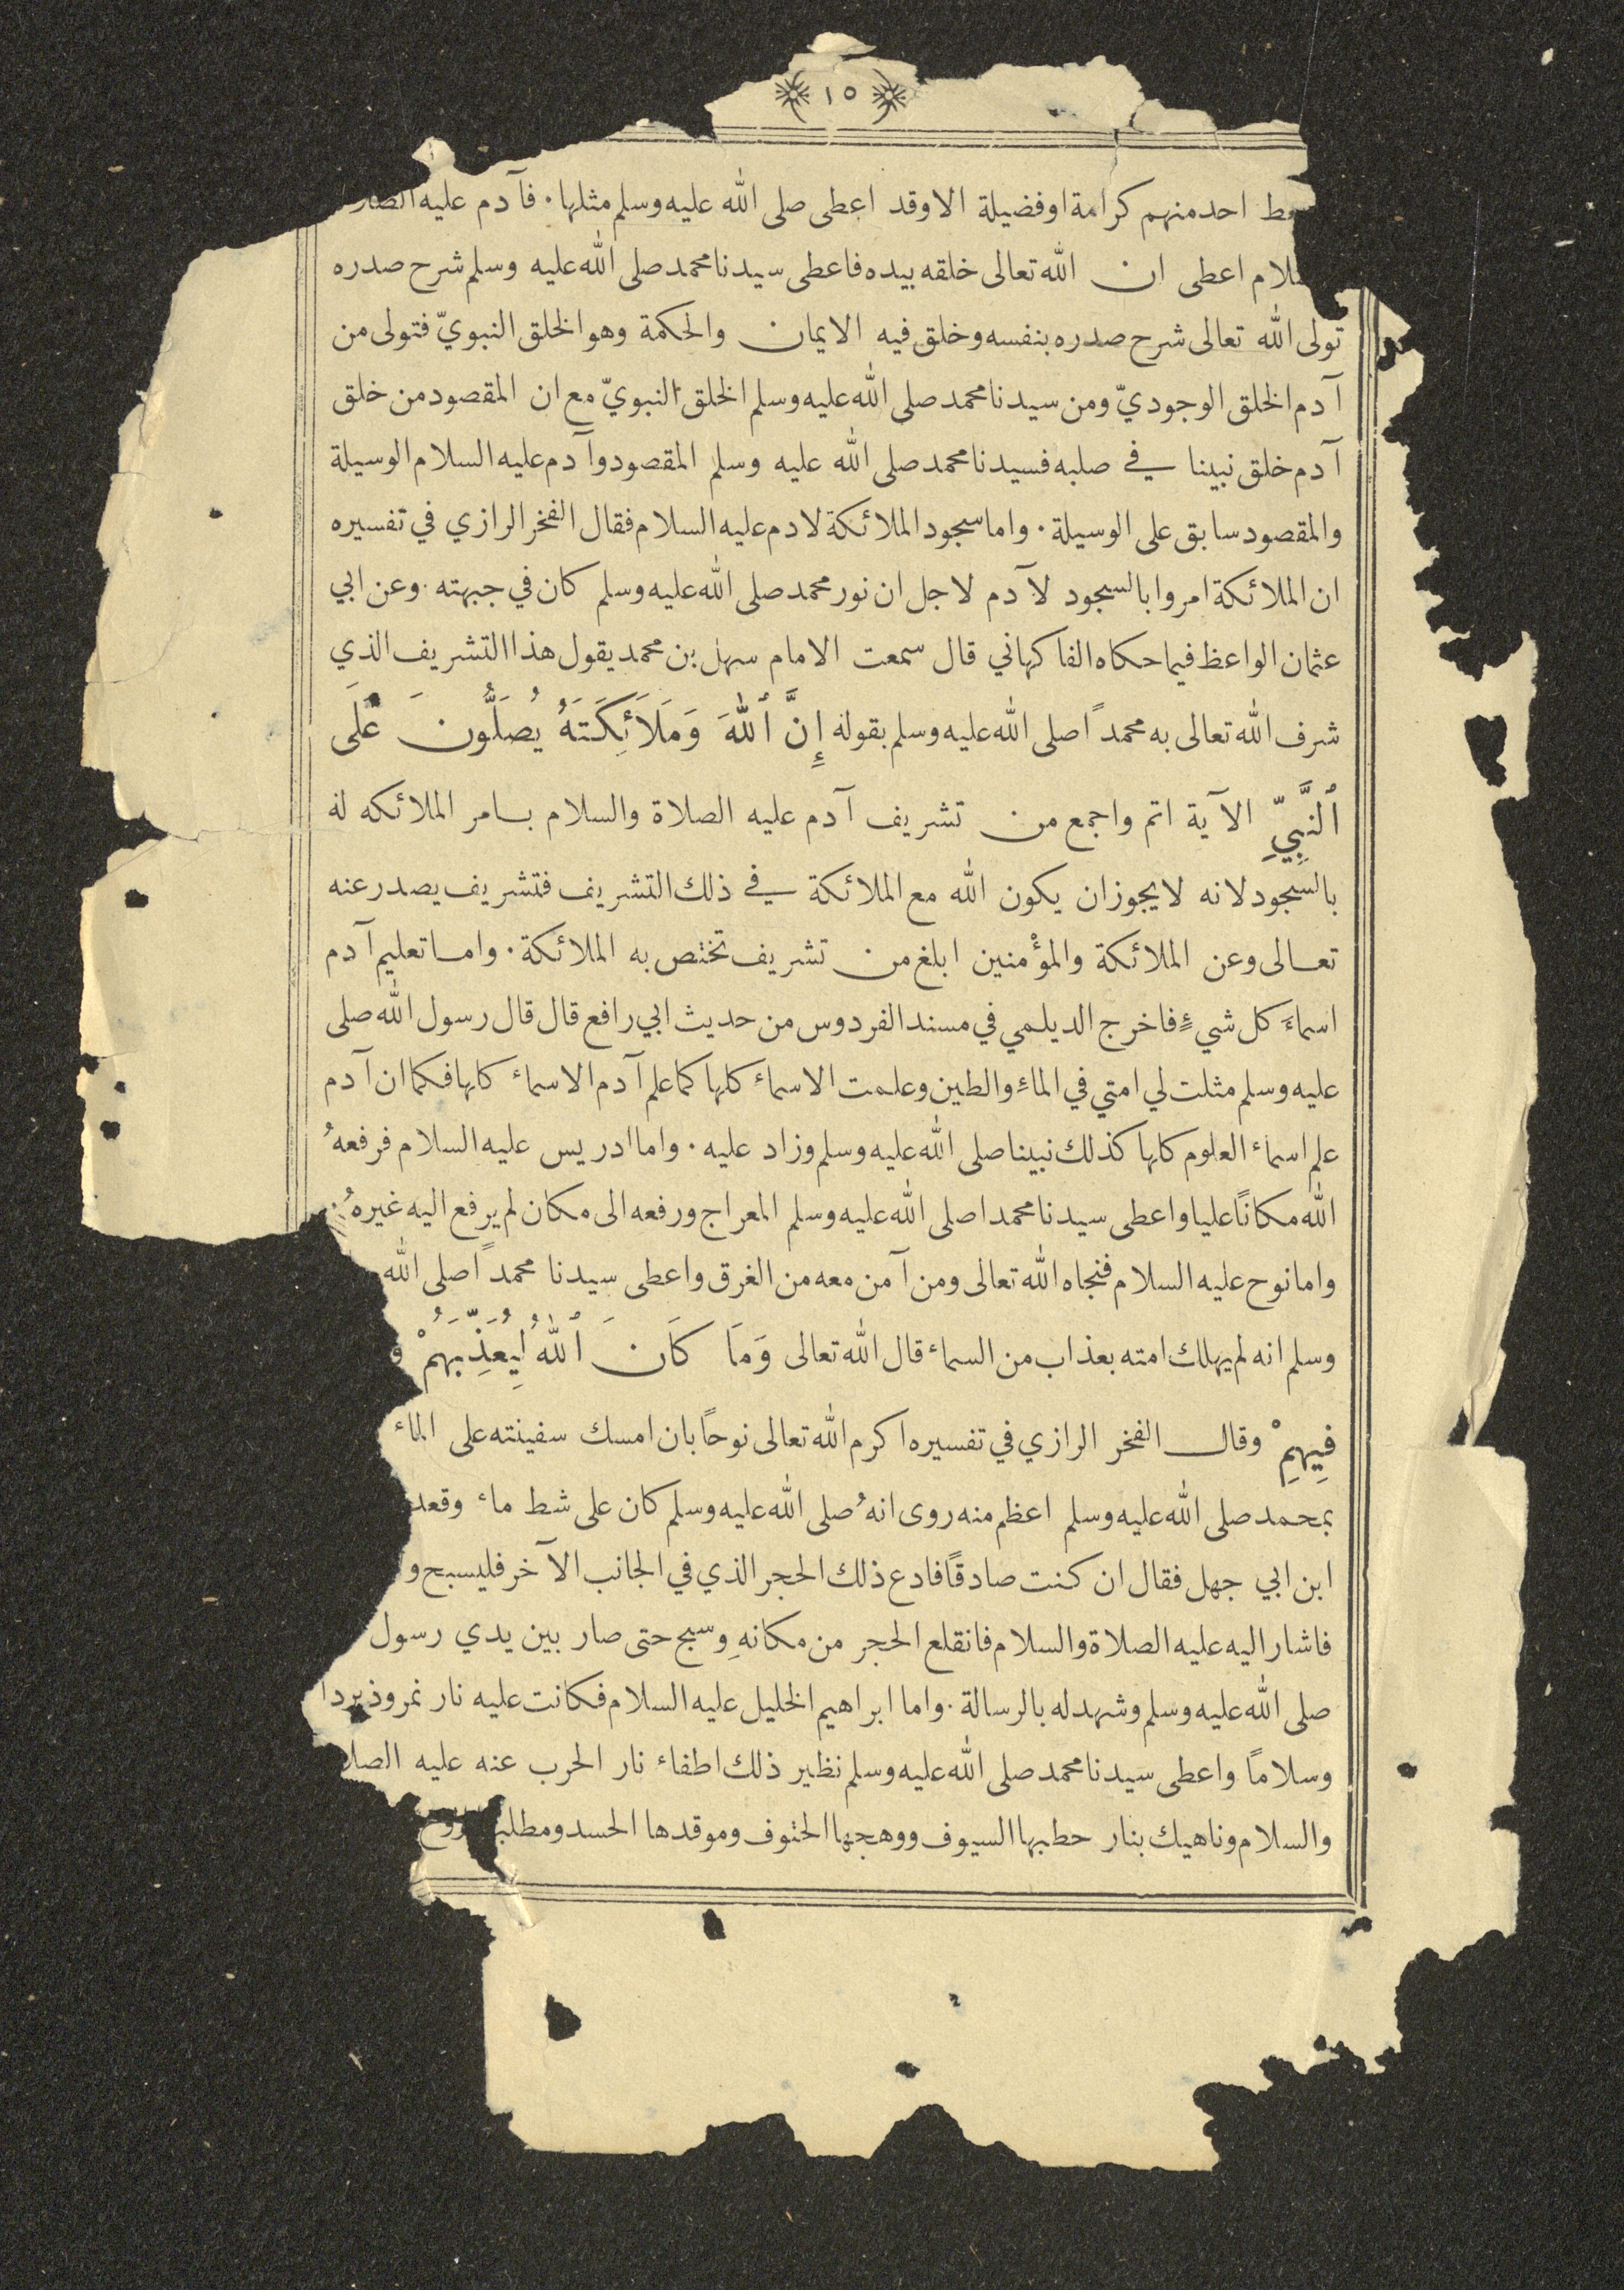 ١٥
احد منهم كرامة او فضيلة الا وقد اعطى صلى الله عليه وسلم مثلها . فآدم عليه
اعطى ان الله تعالى خلقه بيده فاعطى سيدنا محمد صلى الله عليه وسلم شرح صدره
تولى الله تعالى شرح صدره بنفسه وخلق فيه الايمان والحكمة وهو الخلق النبويّ فتولى من
آدم الخلق الوجوديّ ومن سيدنا محمد صلى الله عليه وسلم الخلق النبويّ مع ان المقصود من خلق
آدم خلق نبينا في صلبه فسيدنا محمد صلى الله عليه وسلم المقصود وآدم عليه السلام الوسيلة
والمقصود سابق على الوسيلة . واما سجود الملائكة لادم عليه السلام فقال الفخر الرازي في تفسيره
ان الملائكة امروا بالسجود لآدم لاجل ان نور محمد صلى الله عليه وسلم كان في جبهته . وعن ابي
عثمان الواعظ فيما حكاه الفاكهاني قال سمعت الامام سهل بن محمد يقول هذا التشريف الذي
شرف الله تعالى به محمداً صلى الله عليه وسلم بقوله إِنَّ ٱللهَ وَمَلَائِكَتَهُ يُصَلُّونَ عَلَى
ٱلنَّبِيِّ الآية اتم واجمع من تشريف آدم عليه الصلاة والسلام بامر الملائكه له
بالسجود لانه لا يجوز ان يكون الله مع الملائكة في ذلك التشريف فتشريف يصدر عنه
تعالى وعن الملائكة والمؤْمنين ابلغ من تشريف تختص به الملائكة . واما تعليم آدم
اسماءَ كل شيءٍ فاخرج الديلمي في مسند الفردوس من حديث ابي رافع قال قال رسول الله صلى
عليه وسلم مثلت لي امتي في الماءِ والطين وعلمت الاسماء كلها كما علم آدم الاسماء كلها فكما ان آدم
علم اسماء العلوم كلها كذلك نبينا صلى الله عليه وسلم وزاد عليه . واما ادريس عليه السلام فرفعهُ
الله مكاناً عليا واعطى سيدنا محمدا صلى الله عليه وسلم المعراج ورفعه الى مكان لم يرفع اليه غيرهُ .
واما نوح عليه السلام فنجاه الله تعالى ومن آمن معه من الغرق واعطى سيدنا محمداً صلى الله
وسلم انه لم يهلك امته بعذاب من السماء قال الله تعالى وَمَا كَانَ ٱللهُ لِيُعَذِّبَهُمْ
فِيهِمْ وقال الفخر الرازي في تفسيره اكرم الله تعالى نوحاً بان امسك سفينته على الماء
بمحمد صلى الله عليه وسلم اعظم منه روى انهُ صلى الله عليه وسلم كان على شط ماء وقعد
ابن ابي جهل فقال ان كنت صادقاً فادع ذلك الحجر الذي في الجانب الآخر فليسبح و
فاشار اليه عليه الصلاة والسلام فانقلع الحجر من مكانهِ وسبح حتى صار بين يدي رسول
صلى الله عليه وسلم وشهد له بالرسالة . واما ابراهيم الخليل عليه السلام فكانت عليه نار نمروذ بردا
وسلاماً واعطى سيدنا محمد صلى الله عليه وسلم نظير ذلك اطفاء نار الحرب عنه عليه
والسلام وناهيك بنار حطبها السيوف ووهجها الحتوف وموقدها الحسد
٢